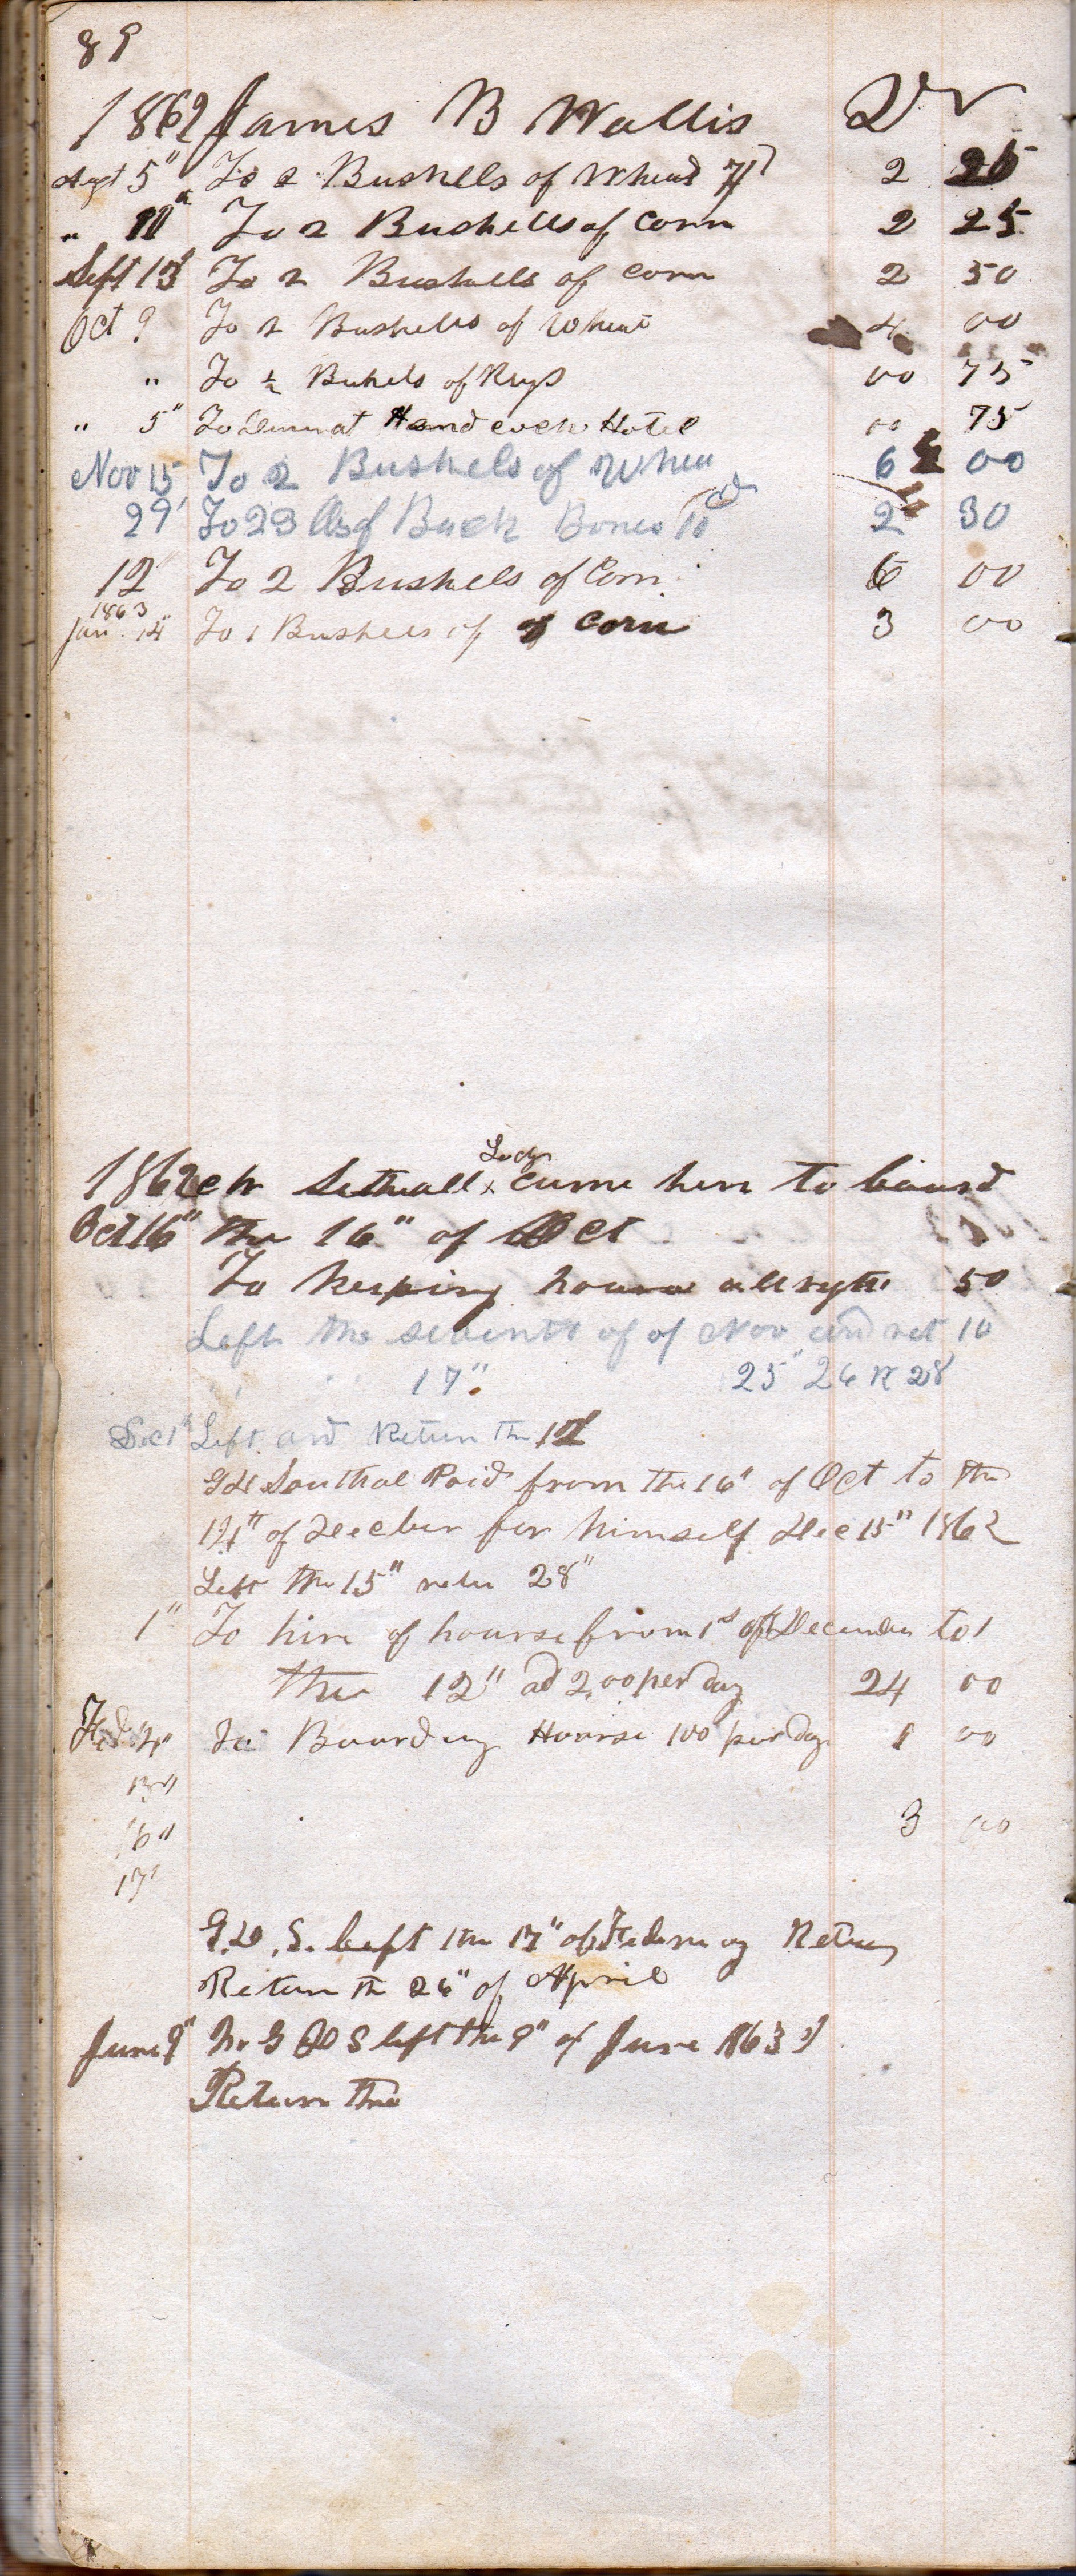 89
1862 James B Wallis Dr
Augt 5" To 2 Bushells of Wheat 2 25
" 11" To 2 Bushells of Corn 2 25
Sept 13" To 2 Bushells of corn 2 50
Oct 9 To 2 Bushells of Wheat 4 00
" To ½ Buhels of 00 75
" 5" To at Hotel 00 75
Nov 15" To 2 Bushels of Whea 6 00
29" To 23 lbs of Back Bones 10 cts 2 30
12" To 2 Bushels of Corn 6 00
1863
Jan. 14" To 1 Bushels of of Corn 3 00
Lady
1862 & came here to board
Oct 16" the 16" of Oct
To keeping hourse all nyte 50
Left the seventh of of Nov and ret 10
17" 25" 26 R 28
Dec 1" Left and Return the 12
Southal Paid from the 16" of Oct to the
14" of Decber for himself Dec 15" 1862
Left the 15" retu 28"
1" To hire of hourse from 1st of December to 1
the 12" ad 2,00 per day 24 00
Feb 4" To Boarding Hourse 100 per day 1 00
13"
16" 3 00
17"
G.D.S. left the 17" of Return
Return th 26" of April
June 9" Mr G D S left the 9" of June 1863
Return the